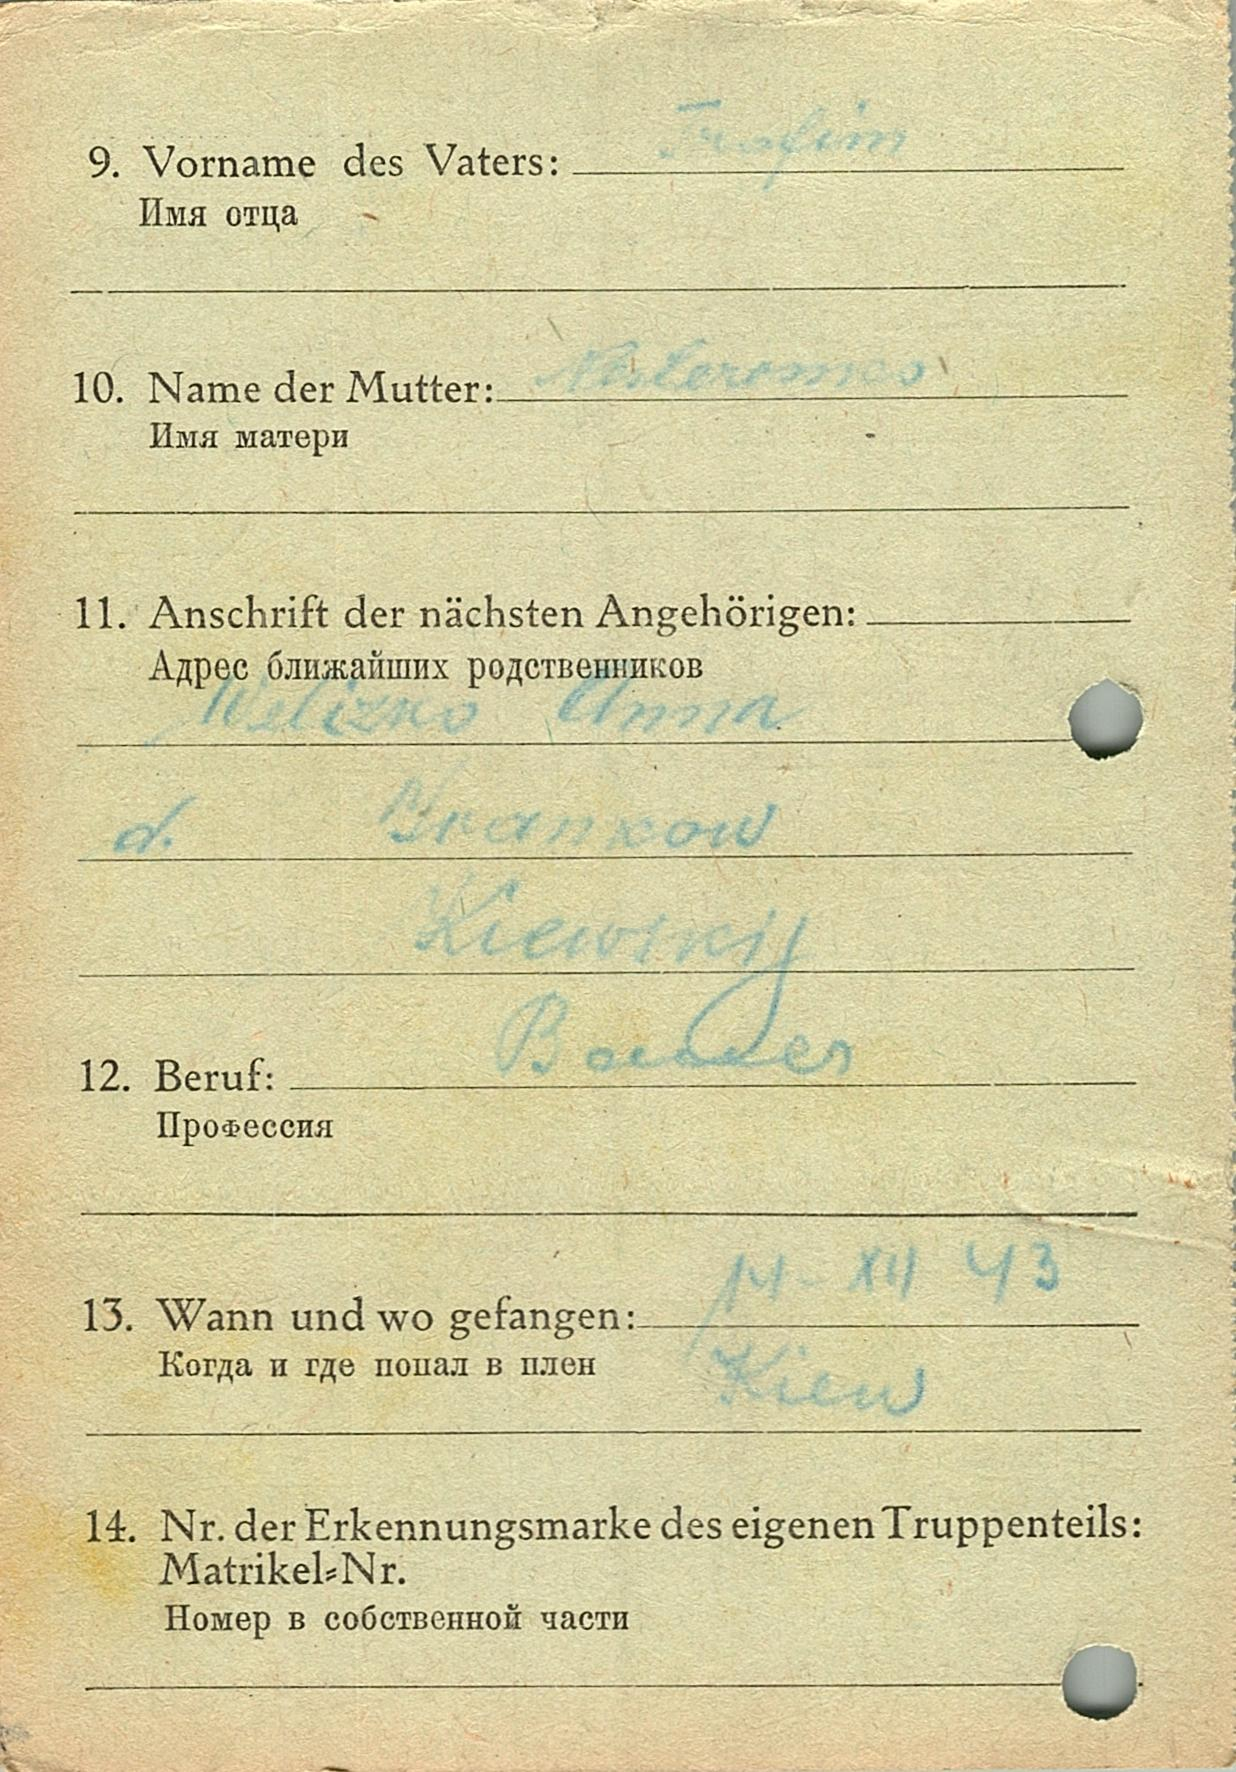 9. Vorname des Vaters: Trofim
Имя отца
10. Name der Mutter:
Имя матери
11. Anschrift der nächsten Angehörigen:
Адрес ближайших родственников
Welizko Anna
d. Brankow
Kiewskij
12. Beruf: Bauer
Профессия
14-XII 43
13. Wann und wo gefangen:
Когда и где попал в плен
Kiew
14. Nr. der Erkennungsmarke des eigenen Truppenteils:
Matrikel-Nr.
Номер в собственной части